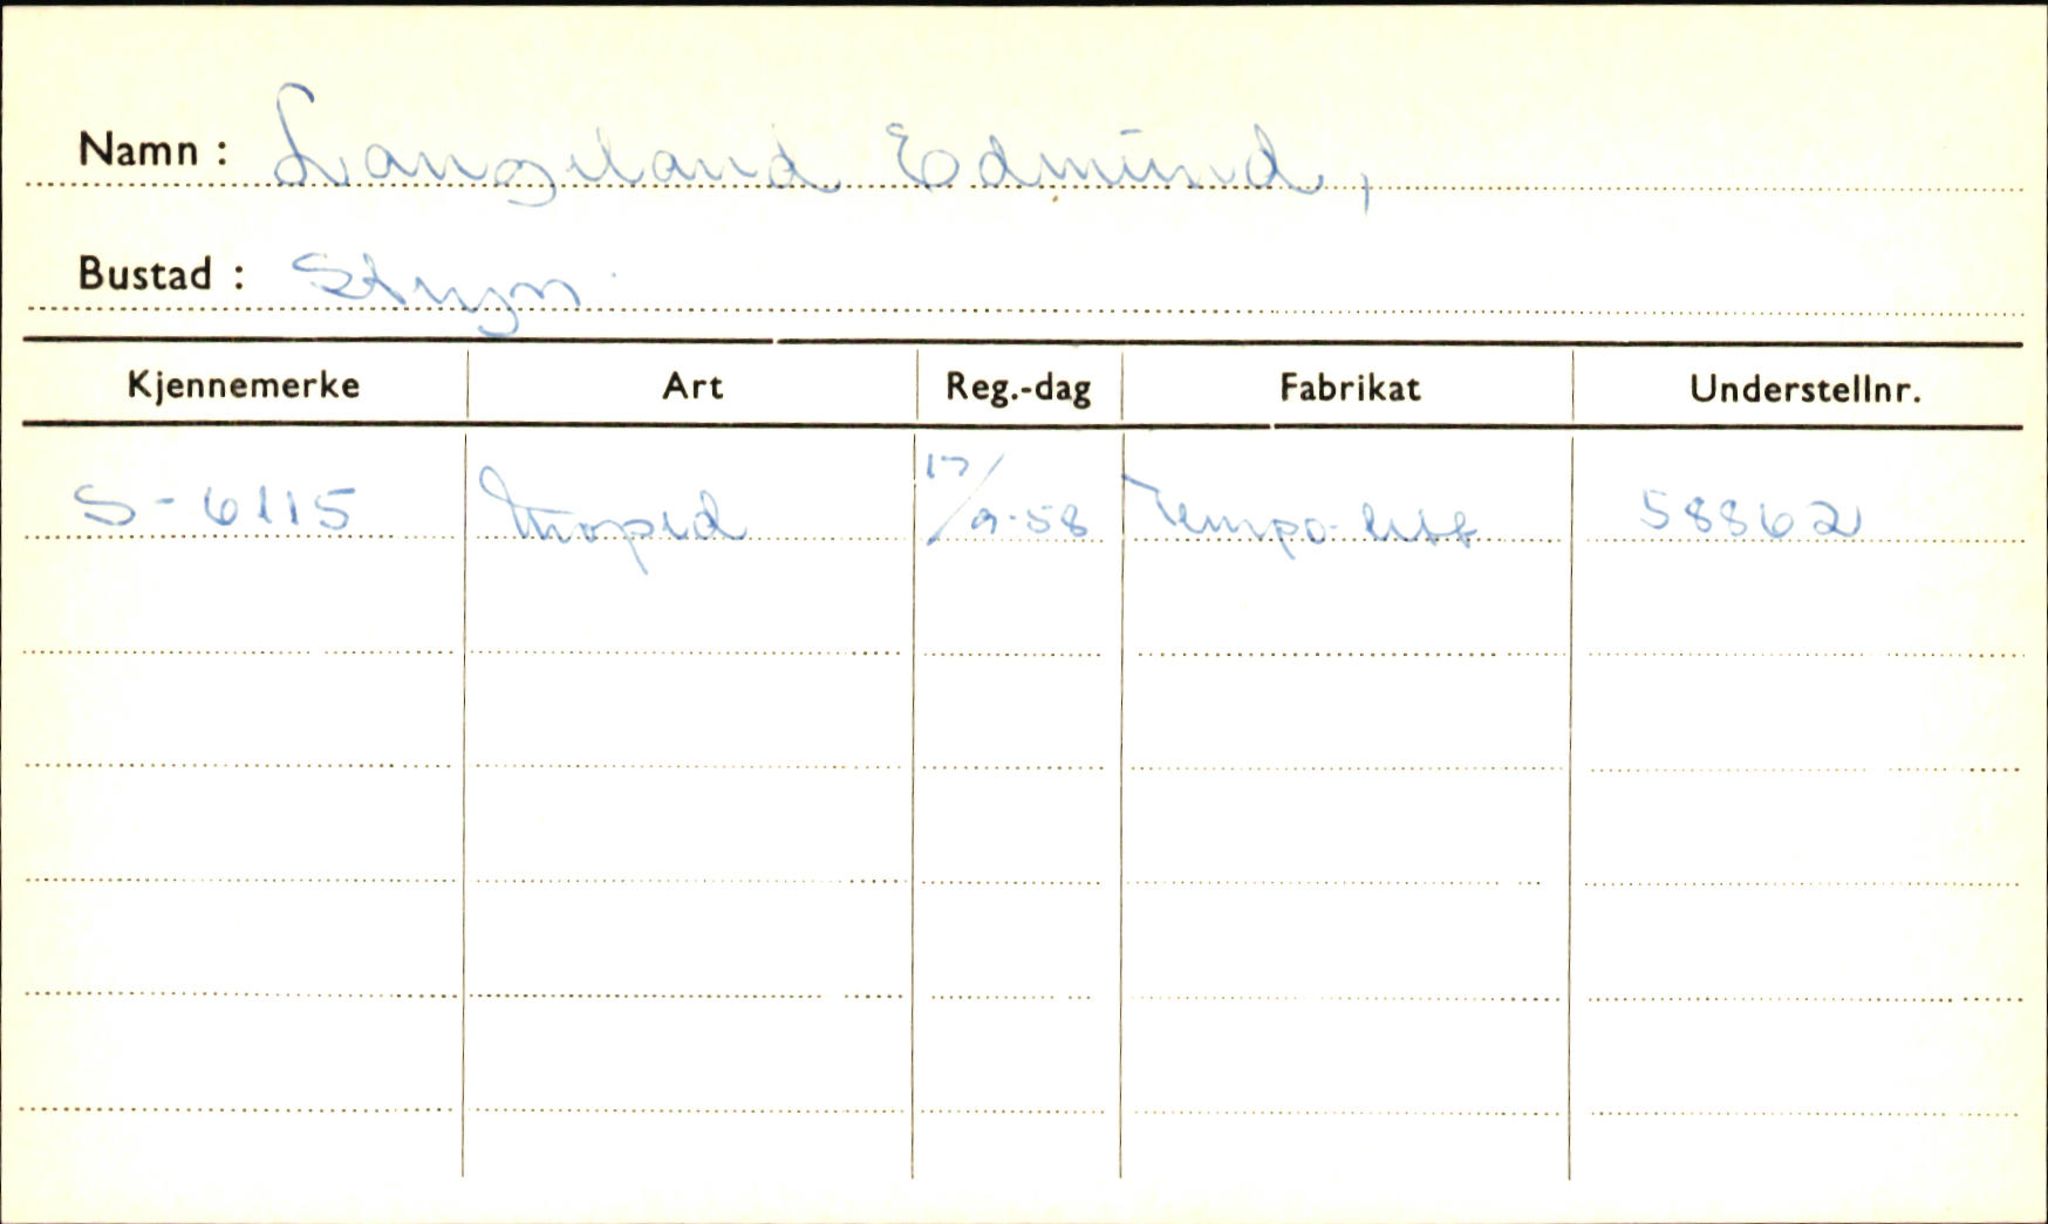 Namn : Langeland Edmund,
Bustad : Stryn
Kjennemerke Art Reg.-dag Fabrikat Understellnr.
S-6115 Moped 17/9-58 Tempo-lett 58862